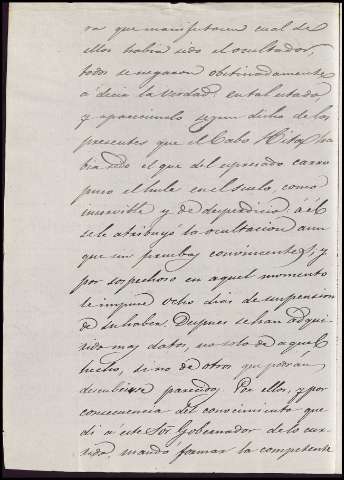 ra que manifestasen cual de
ellos habia sido el ocultador,
todos se negaron obstinadamente
á decir la verdad. En tal estado,
y apareciendo segun dicho de los
presentes que el Cabo Hita ha
bia sido el que del espresado carro
puso el hule en el suelo, como
inservible y de desperdicio, á él
se le atribuyó la ocultacion aun
que sin pruebas convincentes, y
por sospechoso en aquel momento
le impuse ocho dias de suspension
de su haber. Despues se han adqui
rido mas datos, no solo de aquel
hecho, si no de otros que podrán
descubrirse parecidos. Por ellos, y por
consecuencia del conocimiento que
di á este Sor. Gobernador de lo cur
rido, mandó formar la competente